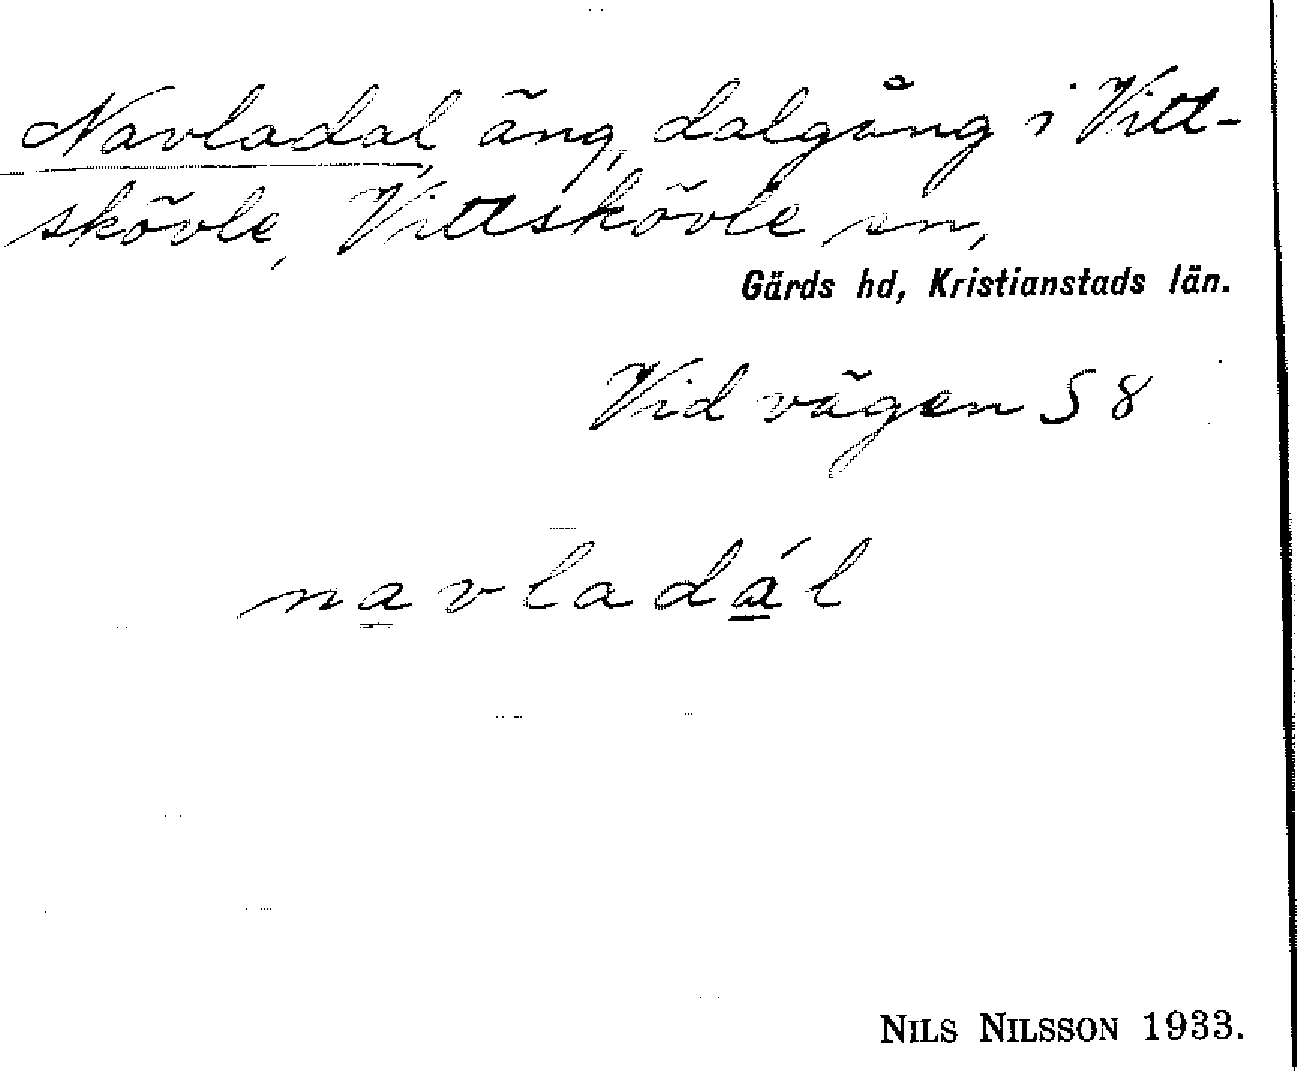 Navladal, äng, dalgång i Vitt-
skövle, Vittskövle sn,
Gärds hd, Kristianstads län.
Vid vägen S 8
navladál
NILS NILSSON 1933.